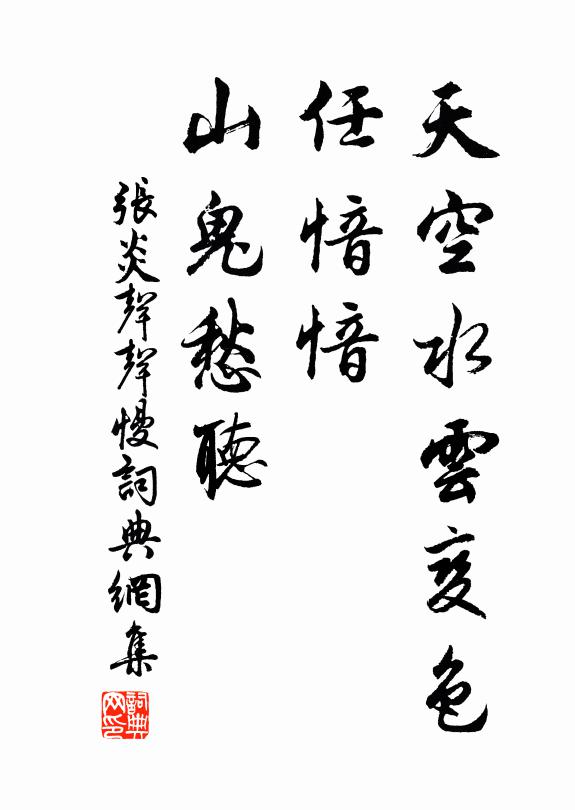 天空水雲变色
任愔愔
山鬼愁聽
張炎聲聲慢詞典網集
詞典
网印